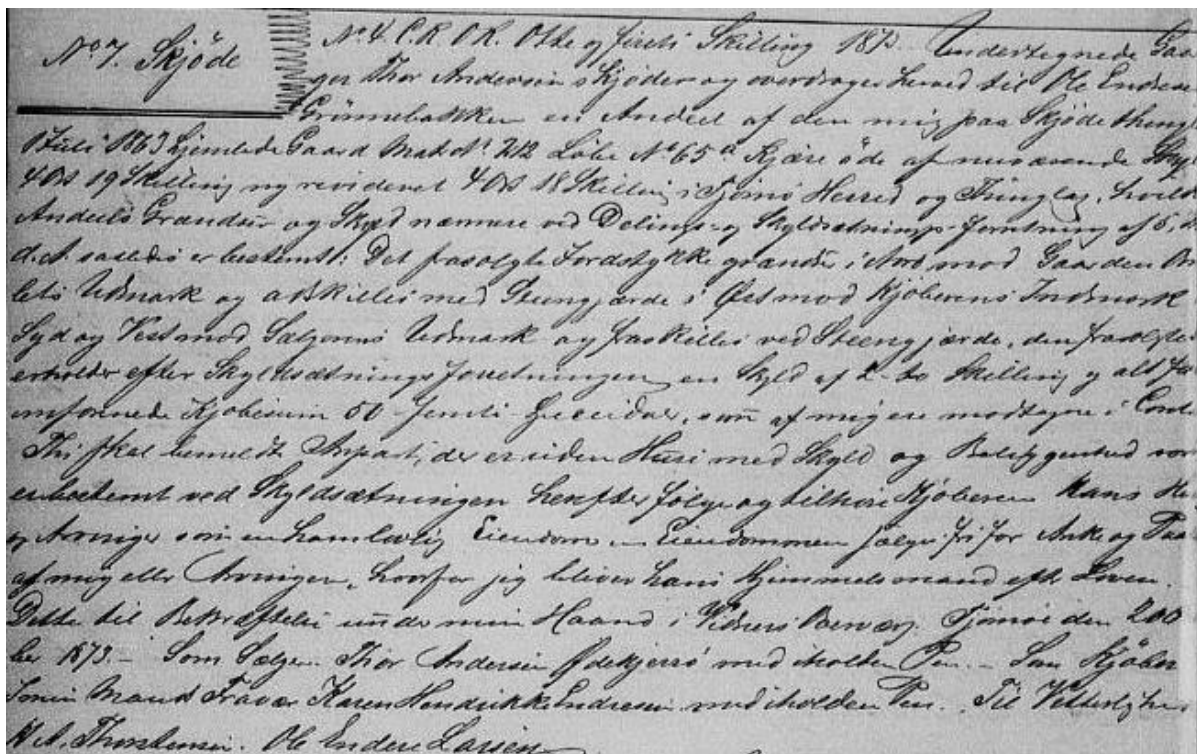 No 7. Skjöde
No 4. C. R. O R. Otte og fireti Skilling 1873. Undertegnede Gaa
ger Thor Andersen skjöder og overdrager herved til Ole Endresen
Grönnebakken en Andeel af den mig paa Skjöde
Juli 1863 hjemlede Gaard Mat No 212 Löbe No 65a Kjære öde af nuværende Skyld
4 Ort 19 Skilling ny revideret 4 Ort 18 Skilling i Tjömö Herred og Thinglag, hvilke
Andeels Grændser og Skyld nærmere ved Delings- og Skyldsætnings-Forretning af 5,
d. A. saaledes er bestemt: Det frasolgte Jordstykke grændser i Nord mod Gaarden
Udmark og adskilles med Steengjærde i Öst mod Kjöberens Indmark
Syd og Vest mod Sælgerens Udmark og fraskilles ved Steengjærde, den frasolgte
erholder efter Skyldsætnings Forretningen en Skyld af 2 - to Skilling og alt for
omforenede Kjöbesum 50 - femti - Speciedaler, som af mig ere modtagne i Cont
Thi skal bemeldte Anpart, der er uden Huse med Skyld og Beliggenhed som
er bestemt ved Skyldsætningen herefter fölge og tilhöre Kjöberen Hans He
og Arvinger som en Eiendom Eiendommen sælges fri for Anke og Taa
af mig eller Arvinger, hvorfor jeg bliver hans Hjemmelsmand efter Loven.
Dette til Bekræftelse under min Haand i Vidners Overvær. Tjömö den 20
ber 1873. - Som Sælger Thor Andersen Ödekjerre med iholden Pen. - Som Kjöber
min Mands Fravær Karen Hendrikke Endresen med iholden Pen. Til Vitterlighed
H. A. Thorstensen. Ole Endere Larsen